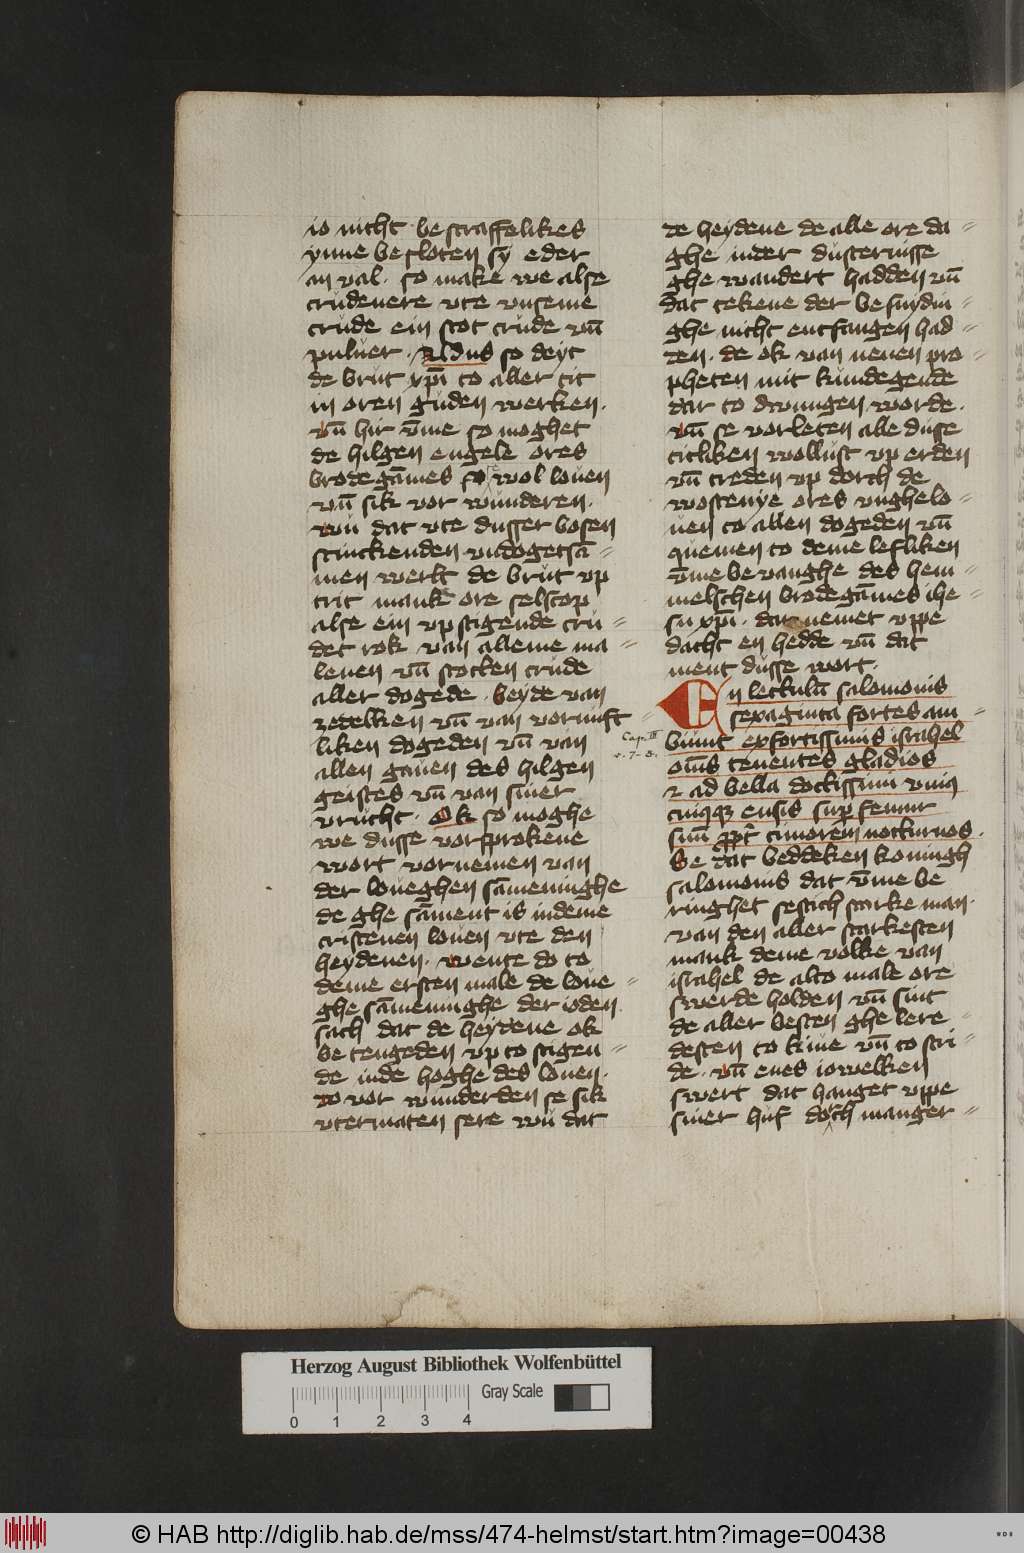 io nicht bestraffelikes
ynne besloten sy eder
an val. so make we alse
crudenere vte vnseme
crude ein stot crude vn̄
puluer. Aldus so deyt
de brut xp̄i to aller tit
in oren guden werken.
vn̄ hir v̄me so moghet
de hilgen engele ores
brodegāmes so wol louen
vn̄ sik vor wunderen.
wu dat vte dusser bosen
stinckenden vndogetsā=
men werlt de brut vp
trit mank ore selscop
alse ein vp stigende cru=
det rok van alleme ma=
lenen vn̄ stocken crude
aller dogede. beyde van
zedelken vn̄ van vornuft=
liken dogeden vn̄ van
allen gauen des hilgen
geistes vn̄ van siner
vrucht. Ok so moghe
we dusse vorsprokene
wort vornemen van
der loueghen sāmeninghe
de ghe sāment is indeme
cristenen louen vte den
heydenen. wente do to
deme ersten male de loue=
ghe sāmeninghe der ioden
sach dat de heydene ok
be tengeden vp to stigen=
de inde hoghe des louen.
do vor wunderden se sik
vtermaten sere wu dat
de heydene de alle ore da=
ghe inder dusternisse
ghe wandert hadden vn̄
dat tekene der be snydin=
ghe nicht entfangen had=
den. de ok van nenen pro=
pheten mit kundegende
dar to dwungen worde.
vn̄ se vorleten alle dusse
titliken wollust vp erden
vn̄ treden vp dorch de
wostenye ores vnghelo=
uen to allen dogeden vn̄
quemen to deme lefliken
v̄me be vanghe des hem=
melschen brodegāmes ihe=
su xp̄i. dar nemet vppe
dacht en hedde vn̄ dat
ment dusse wort.
En lectulū salomonis
sexaginta fortes am=
biunt ex fortissimis israhel
Cap. III
v. 7-8.
om̄s tenentes gladios
⁊ ad bella doctissimi vniꝰ
cuiusqꝫ ensis suꝑ femur
suū ꝓpt̄ timorem nocturnos.
Se dat beddeken koningh
salomonis dat v̄me be
ringhet sestich starke man.
van den aller starkesten
mank deme volke van
israhel de alto male ore
swerde holden vn̄ sint
de aller besten ghe lere=
desten to kiue vn̄ to stri=
de. vn̄ enes iowelken
swert dat hanget vppe
siner huf doch manger=
Herzog August Bibliothek Wolfenbüttel
0 1 2 3 4 Gray Scale
© HAB http://diglib.hab.de/mss/474-helmst/start.htm?image=00438